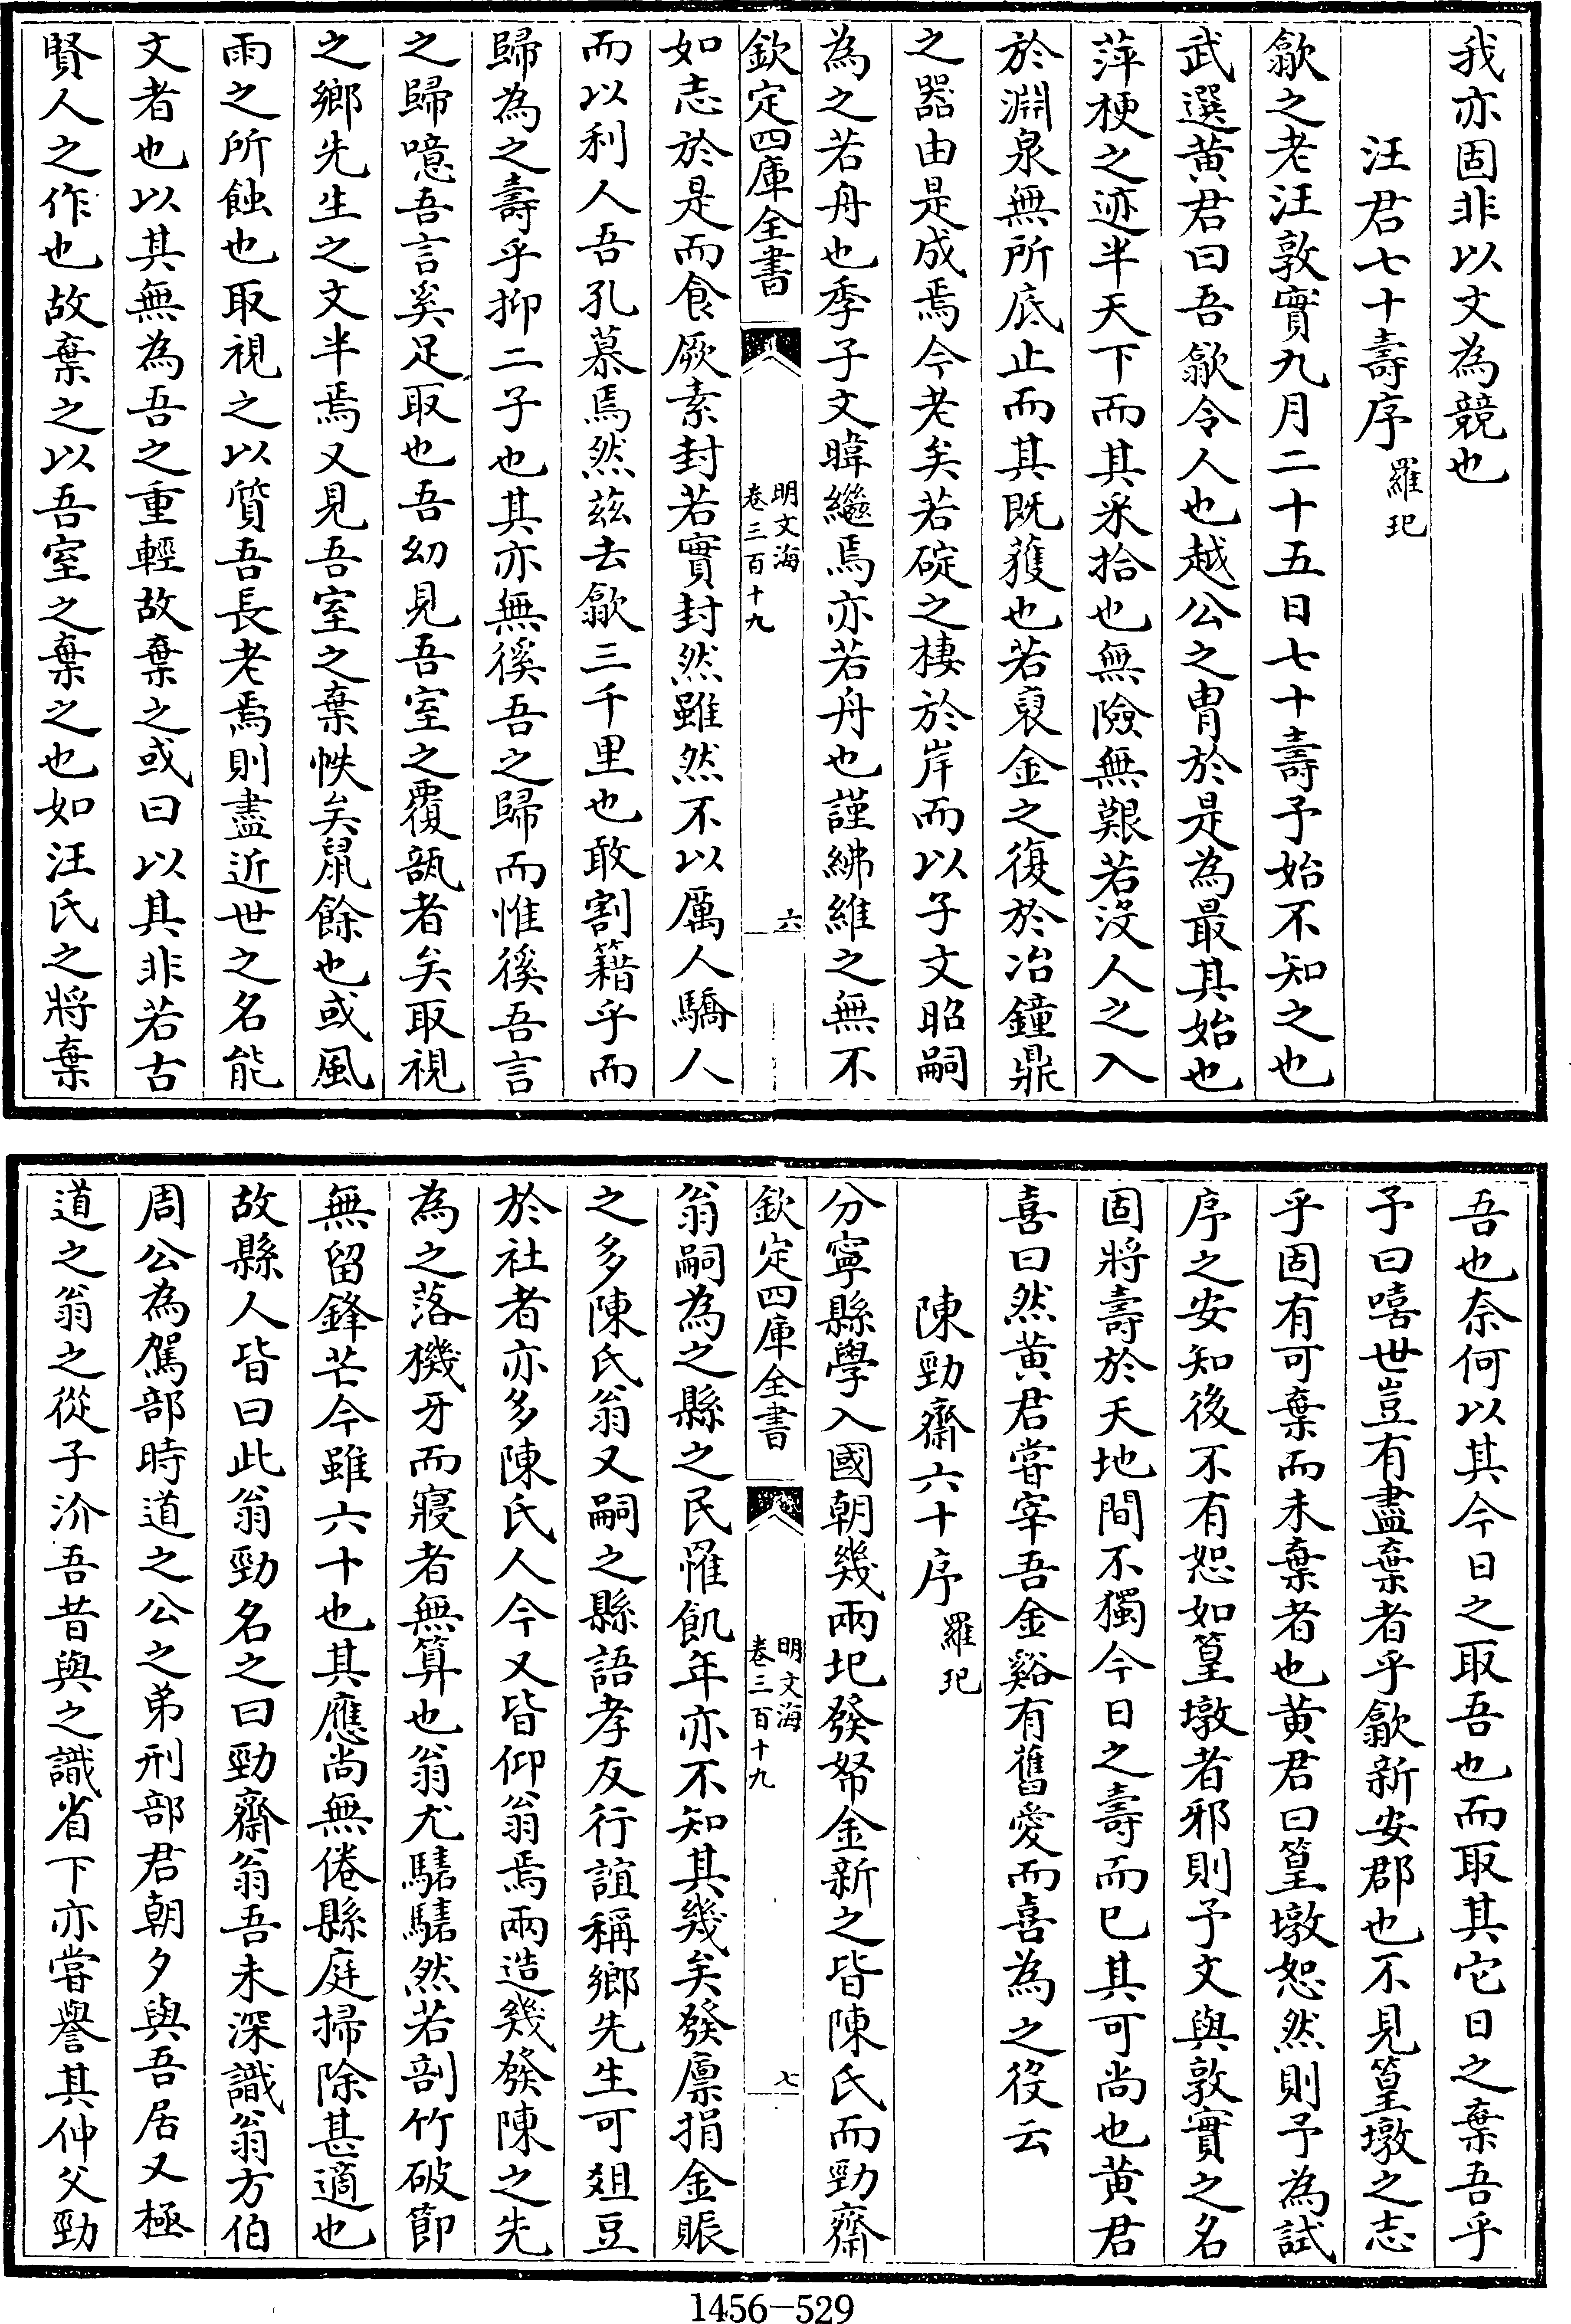 我亦固非以文為競也
汪君七十壽序 羅玘
歙之老汪敦實九月二十五日七十壽予始不知之也
武選黄君曰吾歙令人也越公之胄於是為最其始也
萍梗之迹半天下而其采拾也無險無艱若没人之入
於淵泉無所底止而其既獲也若裒金之復於冶鐘鼎
之器由是成焉今老矣若碇之棲於岸而以子文昭嗣
為之若舟也季子文暐繼焉亦若舟也謹紼維之無不
欽定四庫全書
明文海
卷三百十九
六
如志於是而食厥素封若實封然雖然不以厲人驕人
而以利人吾孔慕焉然兹去歙三千里也敢割籍乎而
歸為之壽乎抑二子也其亦無徯吾之歸而惟徯吾言
之歸噫吾言奚足取也吾幼見吾室之覆瓿者矣取視
之鄉先生之文半焉又見吾室之棄帙矣鼠餘也或風
雨之所蝕也取視之以質吾長老焉則盡近世之名能
文者也以其無為吾之重輕故棄之或曰以其非若古
賢人之作也故棄之以吾室之棄之也如汪氏之將棄
吾也奈何以其今日之取吾也而取其它日之棄吾乎
予曰嘻世豈有盡棄者乎歙新安郡也不見篁墩之志
乎固有可棄而未棄者也黄君曰篁墩恕然則予為試
序之安知後不有恕如篁墩者邪則予文與敦實之名
固將壽於天地間不獨今日之壽而已其可尚也黄君
喜曰然黄君嘗宰吾金谿有舊愛而喜為之役云
陳勁齋六十序 羅玘
分寧縣學入國朝幾兩圮發帑金新之皆陳氏而勁齋
欽定四庫全書
明文海
卷三百十九
七
翁嗣為之縣之民罹飢年亦不知其幾矣發廪捐金賑
之多陳氏翁又嗣之縣語孝友行誼稱鄉先生可俎豆
於社者亦多陳氏人今又皆仰翁焉兩造幾發陳之先
為之落機牙而寢者無算也翁尤驍驍然若剖竹破節
無留鋒芒今雖六十也其應尚無倦縣庭掃除甚適也
故縣人皆曰此翁勁名之曰勁齋翁吾未深識翁方伯
周公為駕部時道之公之弟刑部君朝夕與吾居又極
道之翁之從子汾吾昔與之識省下亦嘗譽其仲父勁
1456-529